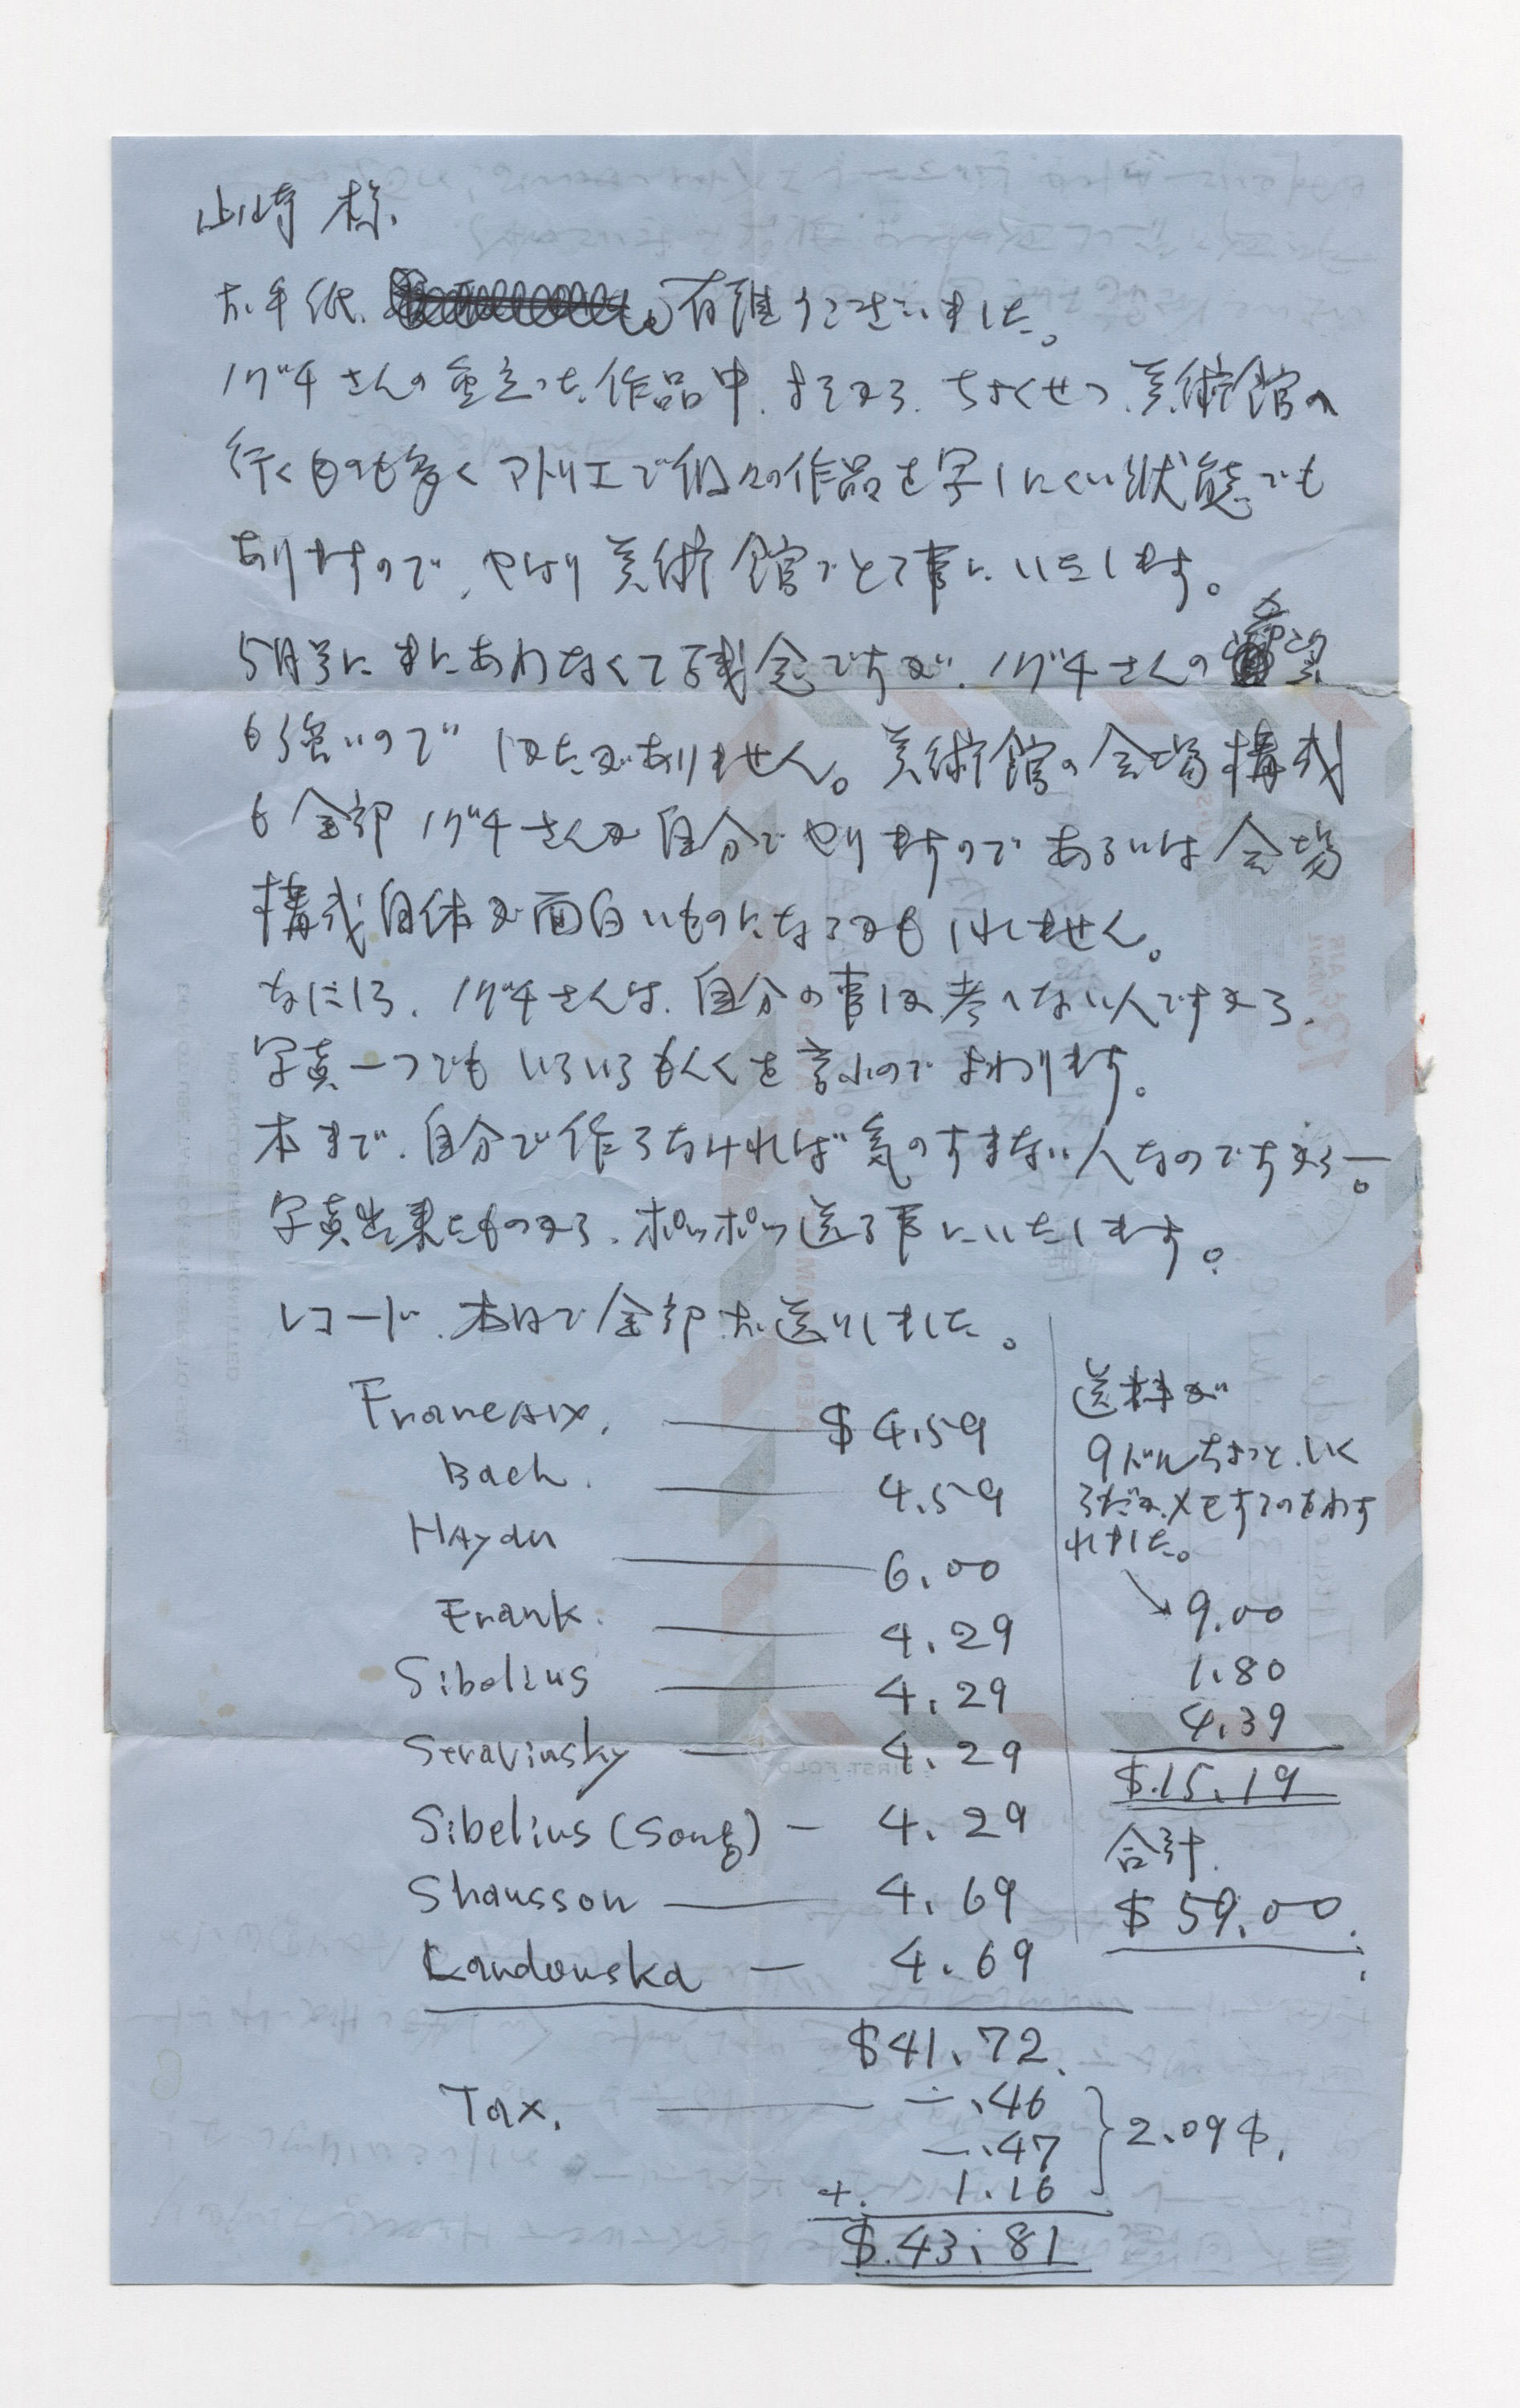 山崎様
お手紙、有難うございました。
ノグチさんの重立った作品中、よそから、ちょくせつ、美術館へ
行くものも多くアトリエで個々の作品を写しにくい状態でも
ありますので、やはり美術館でとる事にいたします。
5月号にまにあわなくて残念ですが、ノグチさんの希望
も強いのでしかたがありません。美術館の会場構成
も全部ノグチさんが自分でやりますのであるいは会場
構成自体が面白いものになるかもしれません。
なにしろ、ノグチさんは、自分の事しか考へない人ですから、
写真一つでもいろいろもんくを言ふのでまいります。
本まで、自分で作らなければ気のすまない人なのですから—。
写真出来たものから、ポツポツ送る事にいたします。
レコード、本日で全部お送りしました。
Franeaix. — $4.59
Bach. — 4.59
Haydn — 6.00
Frank. — 4.29
Sibelius — 4.29
Stravinsky — 4.29
Sibelius (Song) — 4.29
Shausson — 4.69
Landowska — 4.69
$41.72.
Tax. — .46
— .47
+. 1.16
} 2.09$.
$.43.81
送料が
9ドルちょっと、いく
らだかメモするのをわす
れました。
→ 9.00
1.80
4.39
$.15.19
合計.
$59.00.